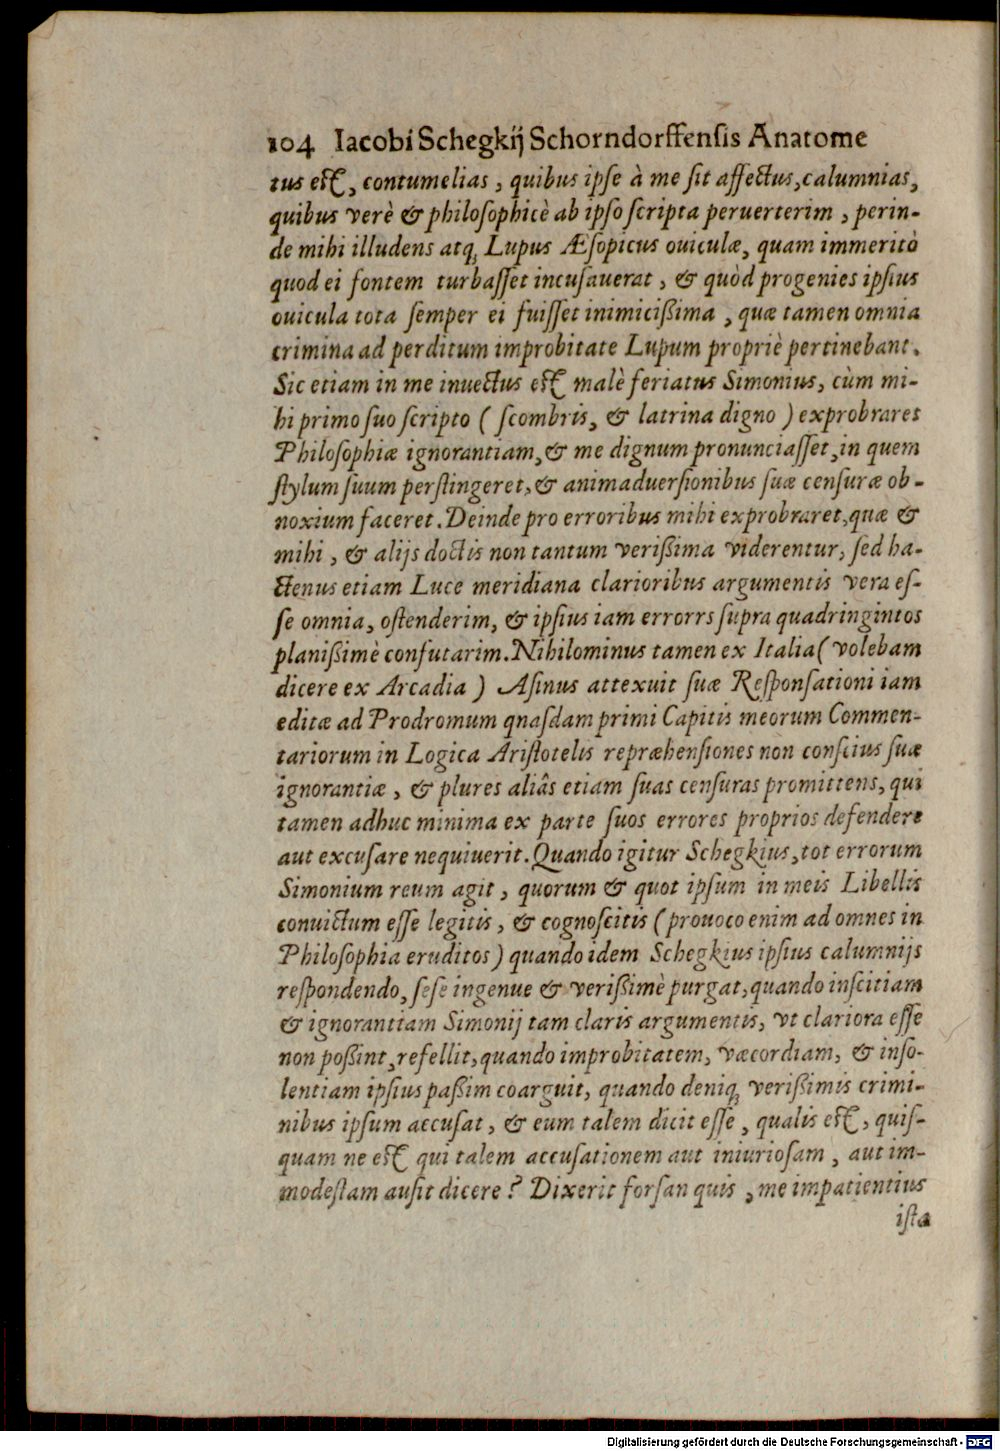 104 Iacobi Schegkij Schorndorffensis Anatome
tus est, contumelias, quibus ipse à me sit affectus, calumnias,
quibus verè & philosophicè ab ipso scripta peruerterim, perin-
de mihi illudens atq; Lupus Æsopicus ouiculæ, quam immeritò
quod ei fontem turbasset incusauerat, & quòd progenies ipsius
ouicula tota semper ei fuisset inimicißima, quæ tamen omnia
crimina ad perditum improbitate Lupum propriè pertinebant.
Sic etiam in me inuectus est malè feriatus Simonius, cùm mi-
hi primo suo scripto ( scombris, & latrina digno ) exprobraret
Philosophiæ ignorantiam, & me dignum pronunciasset, in quem
stylum suum perstingeret, & animaduersionibus suæ censuræ ob-
noxium faceret. Deinde pro erroribus mihi exprobraret, quæ &
mihi, & alijs doctis non tantum verißima viderentur, sed ha-
ctenus etiam Luce meridiana clarioribus argumentis vera es-
se omnia, ostenderim, & ipsius iam errorrs supra quadringintos
planißimè confutarim. Nihilominus tamen ex Italia ( volebam
dicere ex Arcadia ) Asinus attexuit suæ Responsationi iam
editæ ad Prodromum qnasdam primi Capitis meorum Commen-
tariorum in Logica Aristotelis repræhensiones non conscius suæ
ignorantiæ, & plures aliâs etiam suas censuras promittens, qui
tamen adhuc minima ex parte suos errores proprios defendere
aut excusare nequiuerit. Quando igitur Schegkius, tot errorum
Simonium reum agit, quorum & quot ipsum in meis Libellis
conuictum esse legitis, & cognoscitis ( prouoco enim ad omnes in
Philosophia eruditos ) quando idem Schegkius ipsius calumnijs
respondendo, sese ingenue & verißimè purgat, quando inscitiam
& ignorantiam Simonij tam claris argumentis, vt clariora esse
non poßint, refellit, quando improbitatem, væcordiam, & inso-
lentiam ipsius paßim coarguit, quando deniq; verißimis crimi-
nibus ipsum accusat, & eum talem dicit esse, qualis est, quis-
quam ne est qui talem accusationem aut iniuriosam, aut im-
modestam ausit dicere ? Dixerit forsan quis, me impatientius
ista
Digitalisierung gefördert durch die Deutsche Forschungsgemeinschaft - DFG